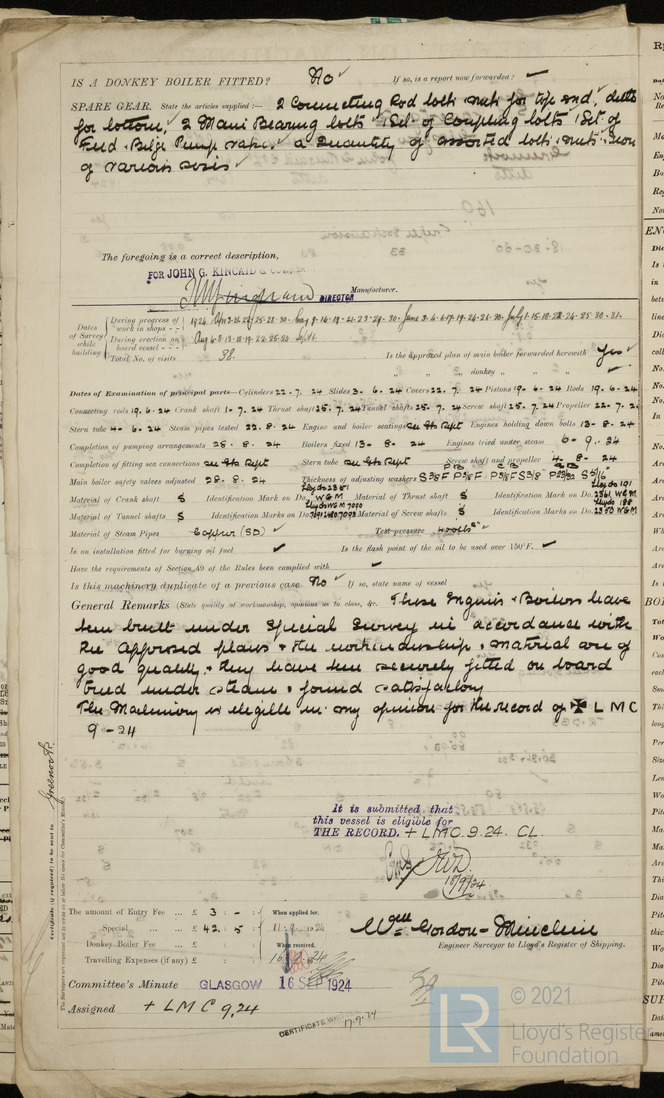 IS A DONKEY BOILER FITTED? No ✓ If so, is a report now forwarded?
SPARE GEAR. State the articles supplied:— 2 Connecting Rod bolts & nuts for top end, ditto
for bottom, 2 Main Bearing bolts 1 Set of Coupling bolts 1 Set of
Feed & Bilge Pump valves a Quantity of assorted bolts & nuts & Iron
of various sizes
The foregoing is a correct description,
FOR JOHN G. KINCAID &
DIRECTOR Manufacturer.
Dates of Survey while building
During progress of work in shops - -
During erection on board vessel - - -
Total No. of visits 38.
Is the approved plan of main boiler forwarded herewith Yes ✓
" " " donkey " "
Dates of Examination of principal parts—Cylinders 22. 7. 24 Slides 3- 6. 24 Covers 22. 7. 24 Pistons 19. 6. 24 Rods 19. 6. 24
Connecting rods 19. 6. 24 Crank shaft 1. 7. 24 Thrust shaft 25. 7. 24 Tunnel shafts 25. 7. 24 Screw shaft 25. 7. 24 Propeller 22. 7. 24
Stern tube 4- 6. 24 Steam pipes tested 22. 8. 24 Engine and boiler seatings see Gls Rept Engines holding down bolts 13- 8. 24
Completion of pumping arrangements 28. 8. 24 Boilers fixed 13- 8- 24 Engines tried under steam 6- 9. 24
Completion of fitting sea connections see Gls Rept Stern tube see Gls Rept Screw shaft and propeller 4- 8- 24
Main boiler safety valves adjusted 28. 8. 24 Thickness of adjusting washers
Material of Crank shaft S Identification Mark on Do. Lloyds 2361 W G M Material of Thrust shaft S Identification Mark on Do. 2361 W G M
Material of Tunnel shafts S Identification Marks on Do. Material of Screw shafts S Identification Marks on Do. 2353 W G M
Material of Steam Pipes Copper (SD) ✓ Test pressure 400 lbs
Is an installation fitted for burning oil fuel ✓ Is the flash point of the oil to be used over 150°F. ✓
Have the requirements of Section 49 of the Rules been complied with
Is this machinery duplicate of a previous case No ✓ If so, state name of vessel
General Remarks (State quality of workmanship, opinions as to class, &c. These Engines & Boilers have
been built under Special Survey in accordance with
the approved plans & the workmanship & material are of
good quality, & they have been securely fitted on board
tried under steam & found satisfactory
The Machinery is eligible in my opinion for the record of ✠ L M C
9 - 24
It is submitted that
this vessel is eligible for
THE RECORD. + LMC. 9. 24. CL
18/9/24
Certificate (if required) to be sent to Greenock.
The Surveyors are requested not to write on or below the space for Committee's Minute.
The amount of Entry Fee ... £ 3 : - : When applied for,
Special ... £ 42. 5 : 11. 9. 1924
Donkey Boiler Fee ... £ : : When received,
Travelling Expenses (if any) £ : :
Wm Gordon-Minchin
Engineer Surveyor to Lloyd's Register of Shipping.
Committee's Minute GLASGOW 16 SEP 1924
Assigned + L M C 9, 24
CERTIFICATE WRITTEN 17-9-24
LR
© 2021
Lloyd's Register
Foundation